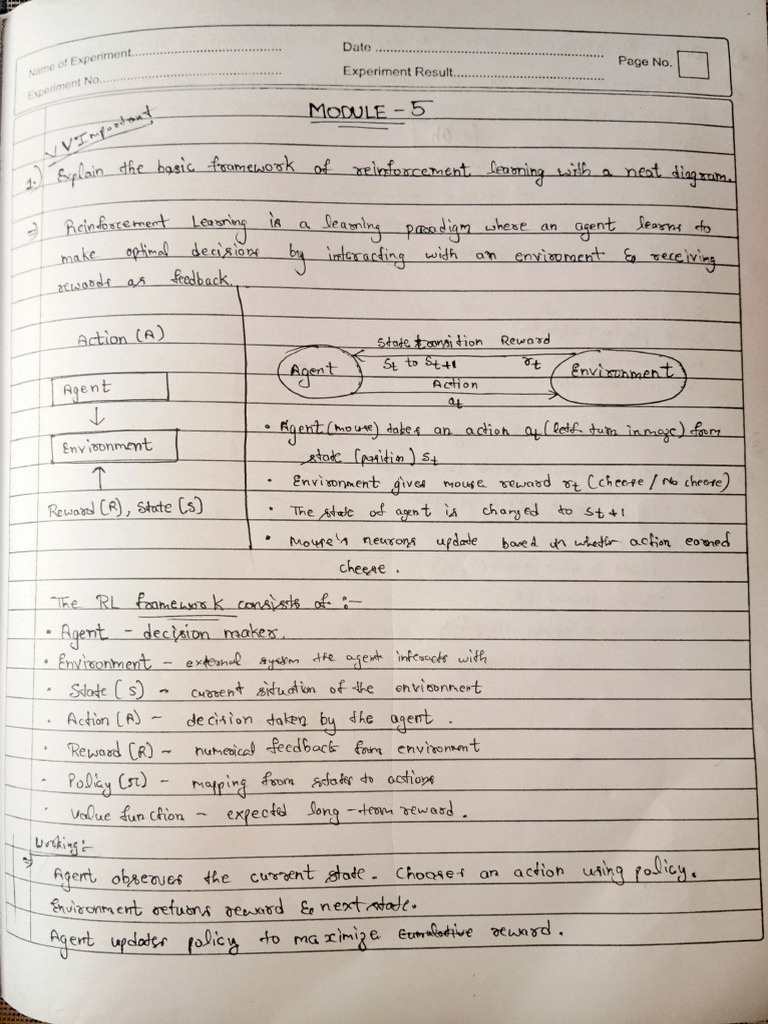 Name of Experiment................................ Date ................................ Page No.
Experiment No................................ Experiment Result................................
MODULE - 5
VV Important
1.) Explain the basic framework of reinforcement learning with a neat diagram.
⇒ Reinforcement Learning is a learning paradigm where an agent learns to
make optimal decisions by interacting with an enviroment & receiving
rewards as feedback.
Action (A)
Agent
↓
Environment
↑
Reward (R), State (S)
State transition Reward
Agent St to St+1 rt Environment
Action
at
• Agent (mouse) takes an action at (left turn in maze) from
state (position) St
• Environment gives mouse reward rt (cheese / No cheese)
• The state of agent is changed to St+1
• Mouse's neurons update based on whether action earned
cheese.
The RL framework consists of :-
• Agent - decision maker.
• Environment - external system the agent interacts with
• State (S) - current situation of the environment
• Action (A) - decision taken by the agent.
• Reward (R) - numerical feedback from environment
• Policy (π) - mapping from states to actions
• Value function - expected long-term reward.
Working:-
⇒ Agent observes the current state. Chooses an action using policy.
Environment returns reward & next state.
Agent updates policy to maximize cumulative reward.